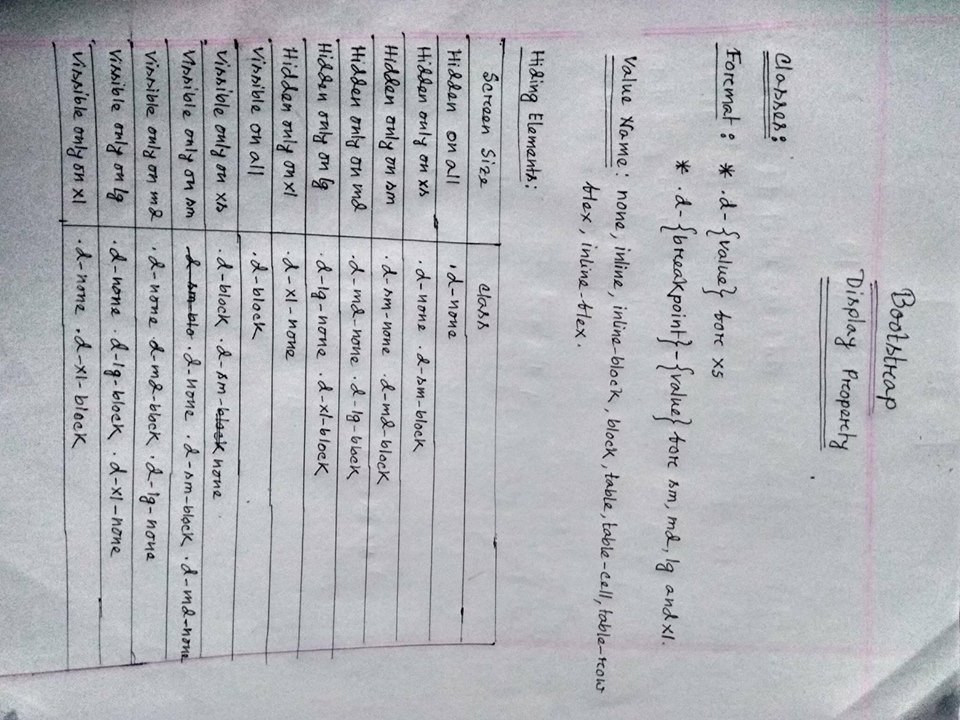 Bootstrap
Display Property
Classes:
Format: * .d-{value} for xs
* .d-{breakpoint}-{value} for sm, md, lg and xl.
Value Name: none, inline, inline-block, block, table, table-cell, table-row
flex, inline-flex.
Hiding Elements:
Screen Size Class
Hidden on all .d-none
Hidden only on xs .d-none .d-sm-block
Hidden only on sm .d-sm-none .d-md-block
Hidden only on md .d-md-none .d-lg-block
Hidden only on lg .d-lg-none .d-xl-block
Hidden only on xl .d-xl-none
Vissible on all .d-block
Vissible only on xs .d-block .d-sm-block none
Vissible only on sm d-sm-blo .d-none .d-sm-block .d-md-none
Vissible only on md .d-none d-md-block .d-lg-none
Vissible only on lg .d-none .d-lg-block .d-xl-none
Vissible only on xl .d-none .d-xl-block